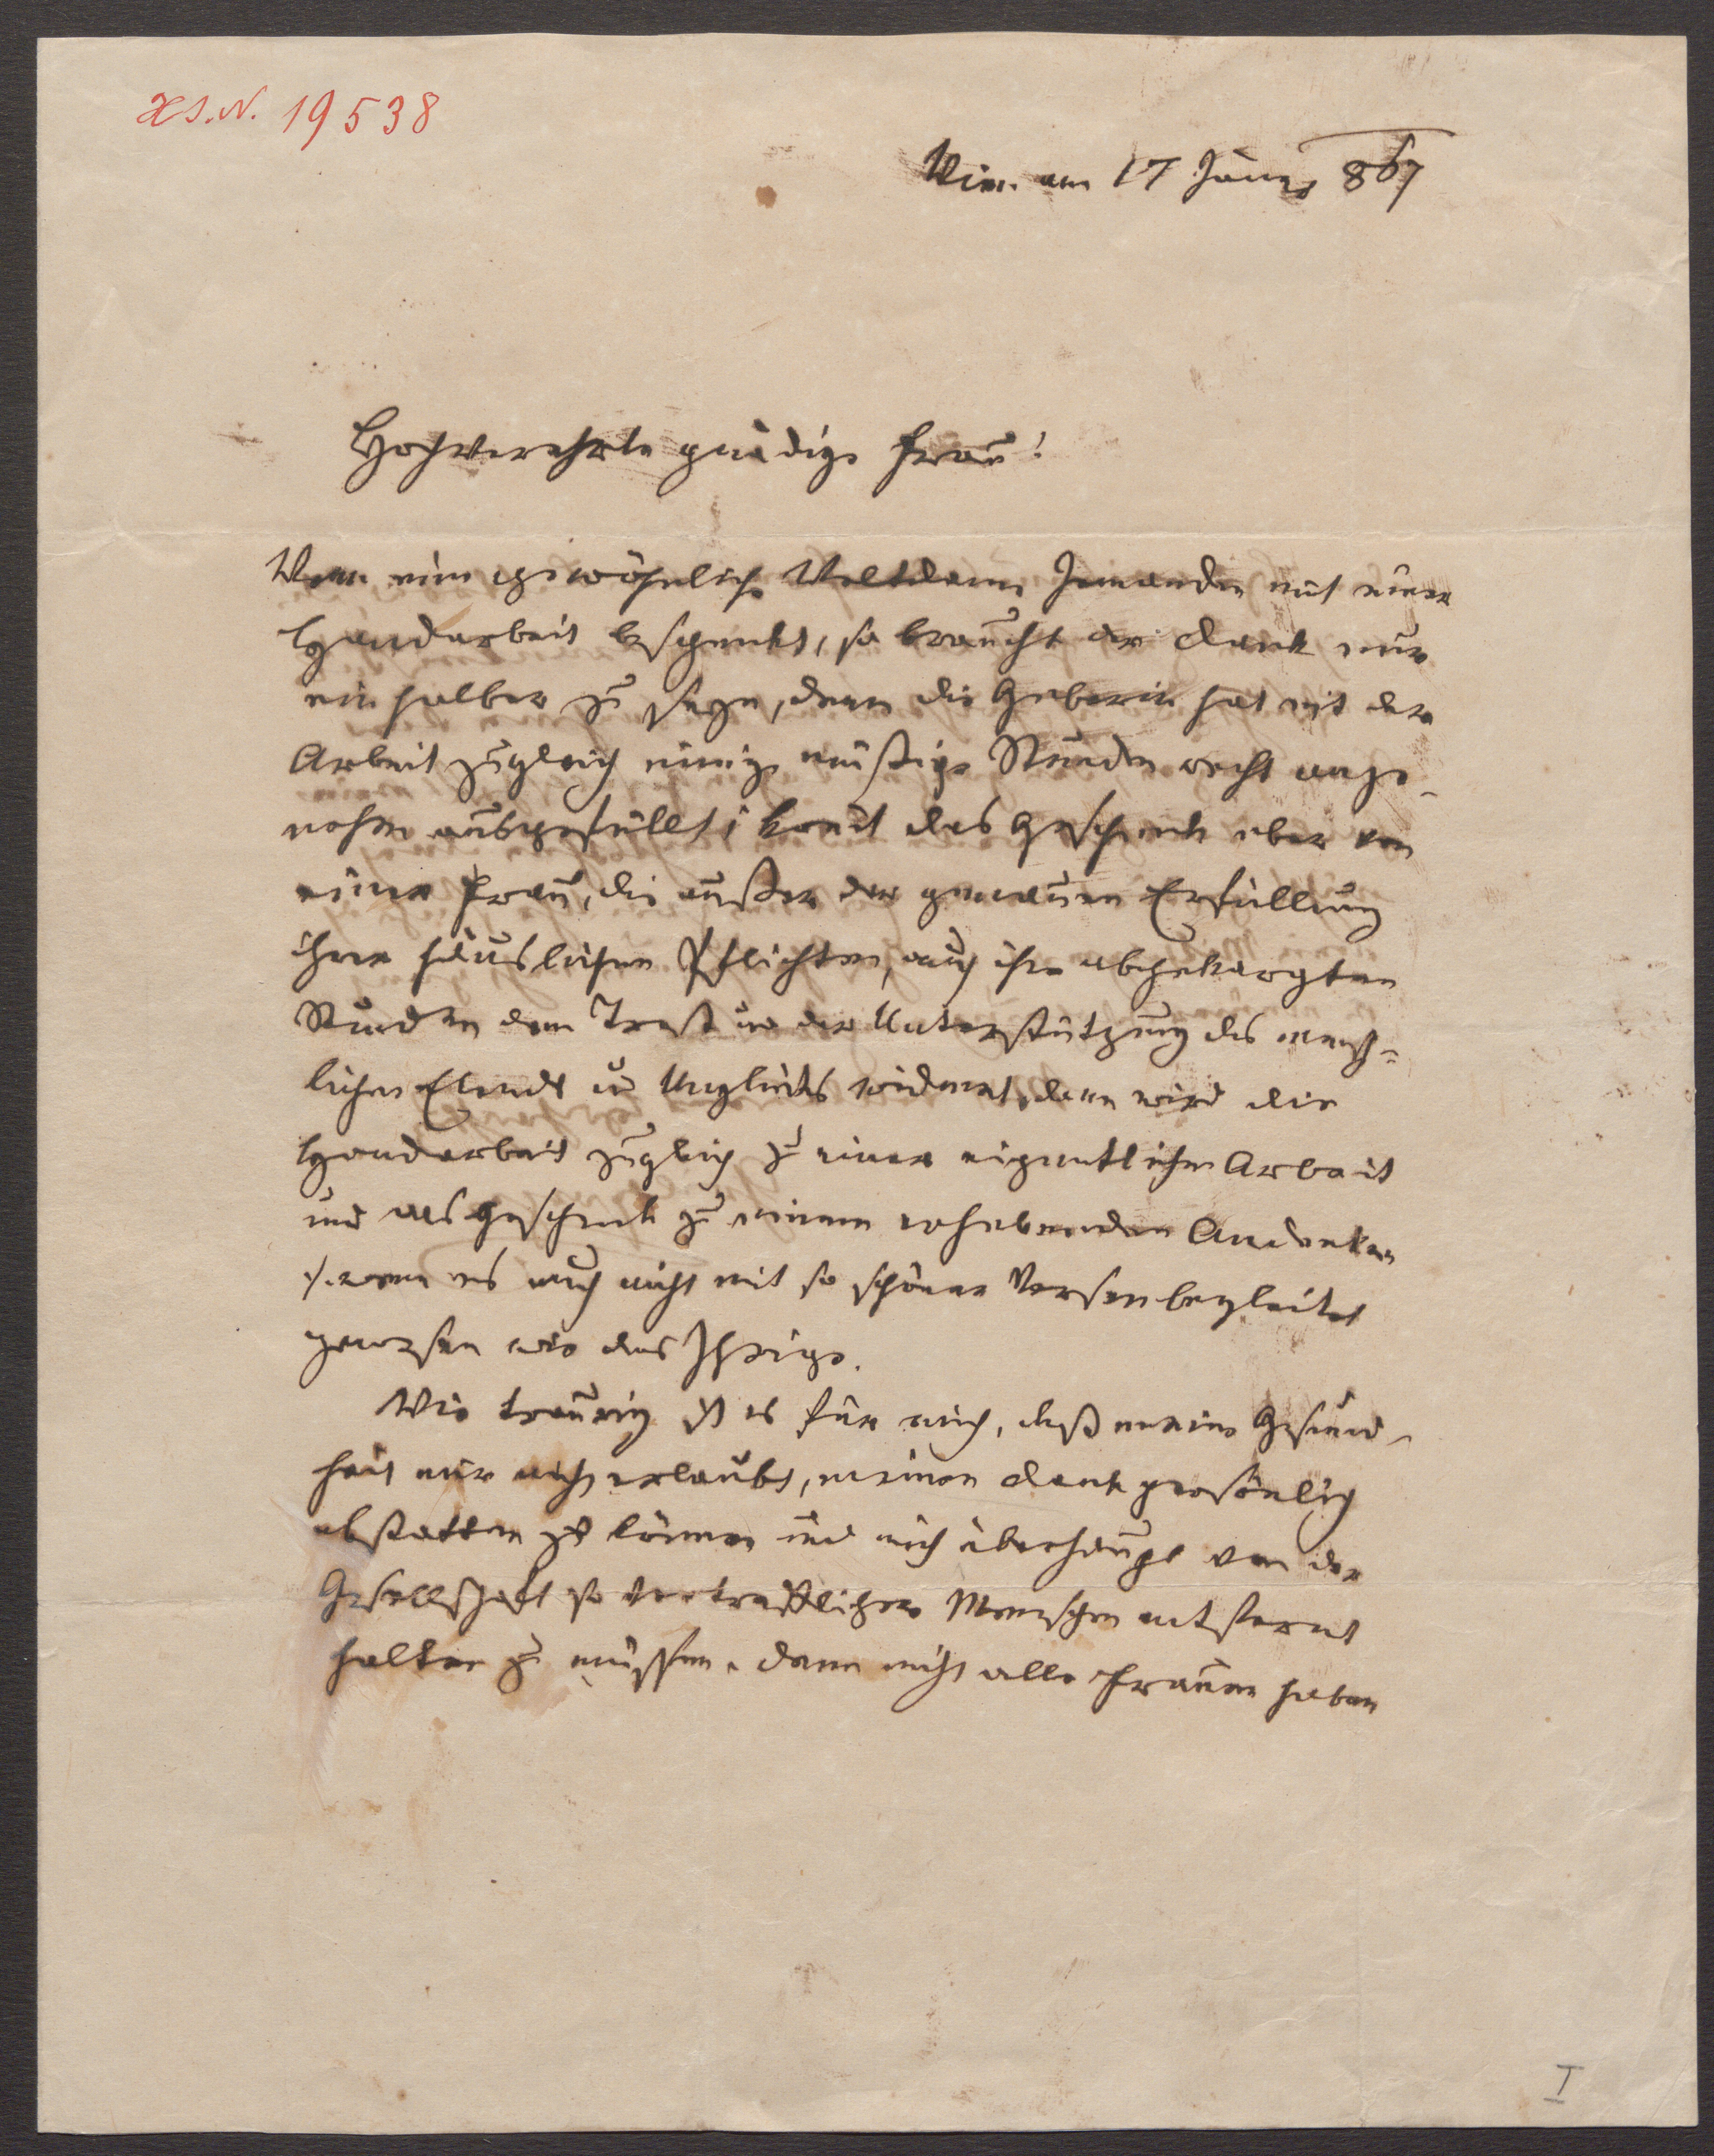 H.I.N. 19538
Wien am 17 Jäner 867
Hochverehrte gnädige Frau!
Wenn eine gewöhnliche Weltdame Jemanden mit einer
Handarbeit beschenkt, so braucht der Dank nur
ein halber zu seyn, denn die Geberin hat mit der
Arbeit zugleich einige müßige Stunden recht ange-
nehm ausgefüllt; komt das Geschenk aber von
einer Frau, die außer der genauen Erfüllung
ihrer häuslichen Pflichten, auch ihre abgekargten
Stunden dem Trost und der Unterstützung des mensch-
lichen Elends u Unglücks widmet, dann wird die
Handarbeit zugleich zu einer eigentlichen Arbeit
und das Geschenk zu einem erhebenden Andenken
wenn es auch nicht mit so schönen Versen begleitet
gewesen wie das Ihrige.
Wie traurig ist es für mich, daß meine Gesund-
heit mir nicht erlaubt, meinen Dank persönlich
abstatten zu können und mich überhaupt von der
Gesellschaft so vortrefflicher Menschen entfernt
halten zu müssen. Denn nicht alle Frauen haben
I